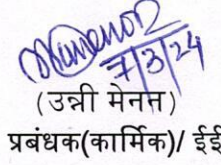 7/3/24
(उन्नी मेनन)
प्रबंधक(कार्मिक)/ ईई